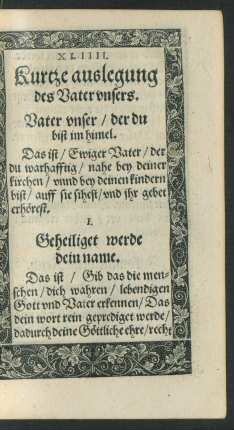 XLIIII.
Kurtze auslegung
des Vater vnsers.
Vater vnser / der du
bist im himel.
Das ist / Ewiger Vater / der
du warhafftig / nahe bey deiner
kirchen / vnnd bey deinen kindern
bist / auff sie sihest / vnd jhr gebet
erhörest.
I.
Geheiliget werde
dein name.
Das ist / Gib das die men-
schen / dich wahren / lebendigen
Gott vnd Vater erkennen / Das
dein wort rein geprediget werde /
dadurch deine Göttliche ehre / recht